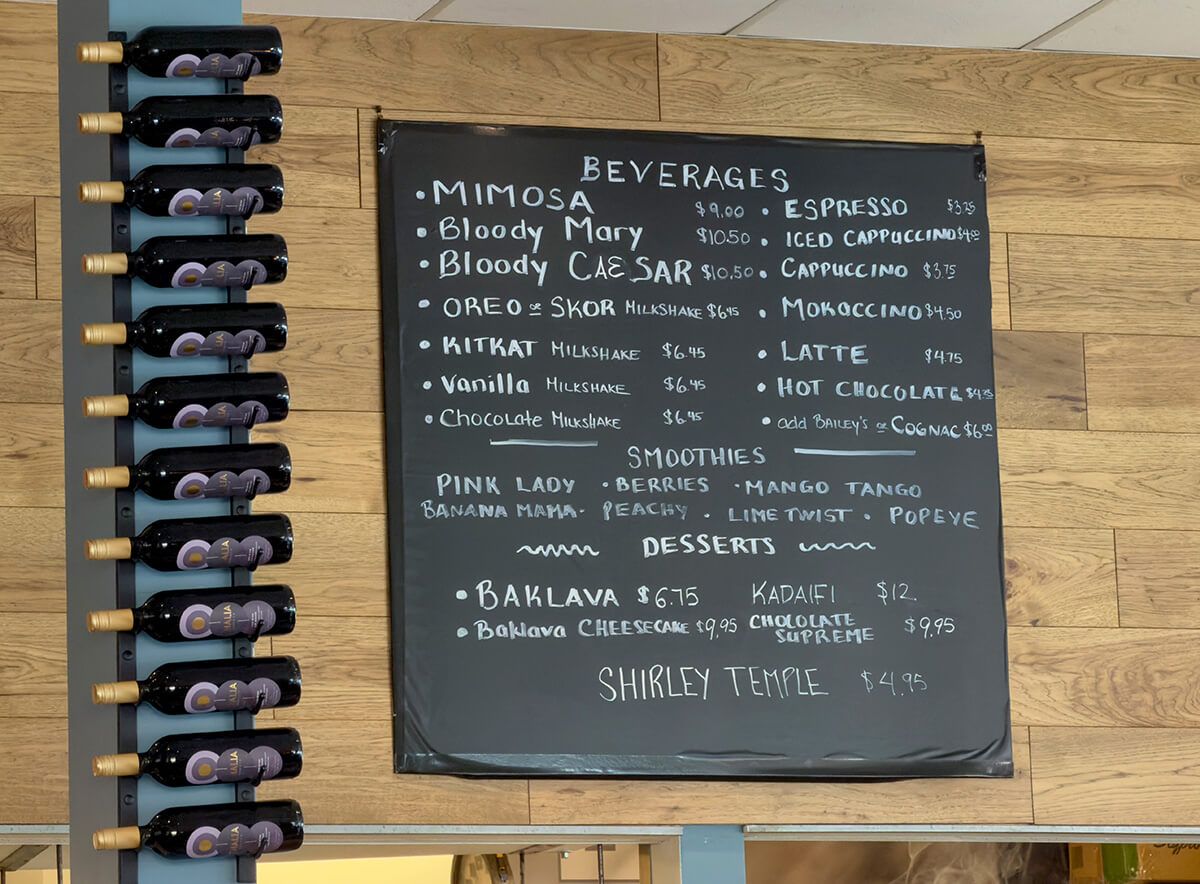 BEVERAGES
• MIMOSA $9.00
• Bloody Mary $10.50
• Bloody CAESAR $10.50
• OREO or SKOR MILKSHAKE $6.45
• KITKAT MILKSHAKE $6.45
• Vanilla MILKSHAKE $6.45
• Chocolate MILKSHAKE $6.45
• ESPRESSO $3.25
• ICED CAPPUCCINO $4.00
• CAPPUCCINO $3.75
• MOKACCINO $4.50
• LATTE $4.75
• HOT CHOCOLATE
• add BAILEY'S or COGNAC $6.00
SMOOTHIES
PINK LADY • BERRIES • MANGO TANGO
BANANA MAMA • PEACHY • LIME TWIST • POPEYE
DESSERTS
• BAKLAVA $6.75 KADAIFI $12.
• Baklava CHEESECAKE $9.95 CHOCOLATE SUPREME $9.95
SHIRLEY TEMPLE $4.95